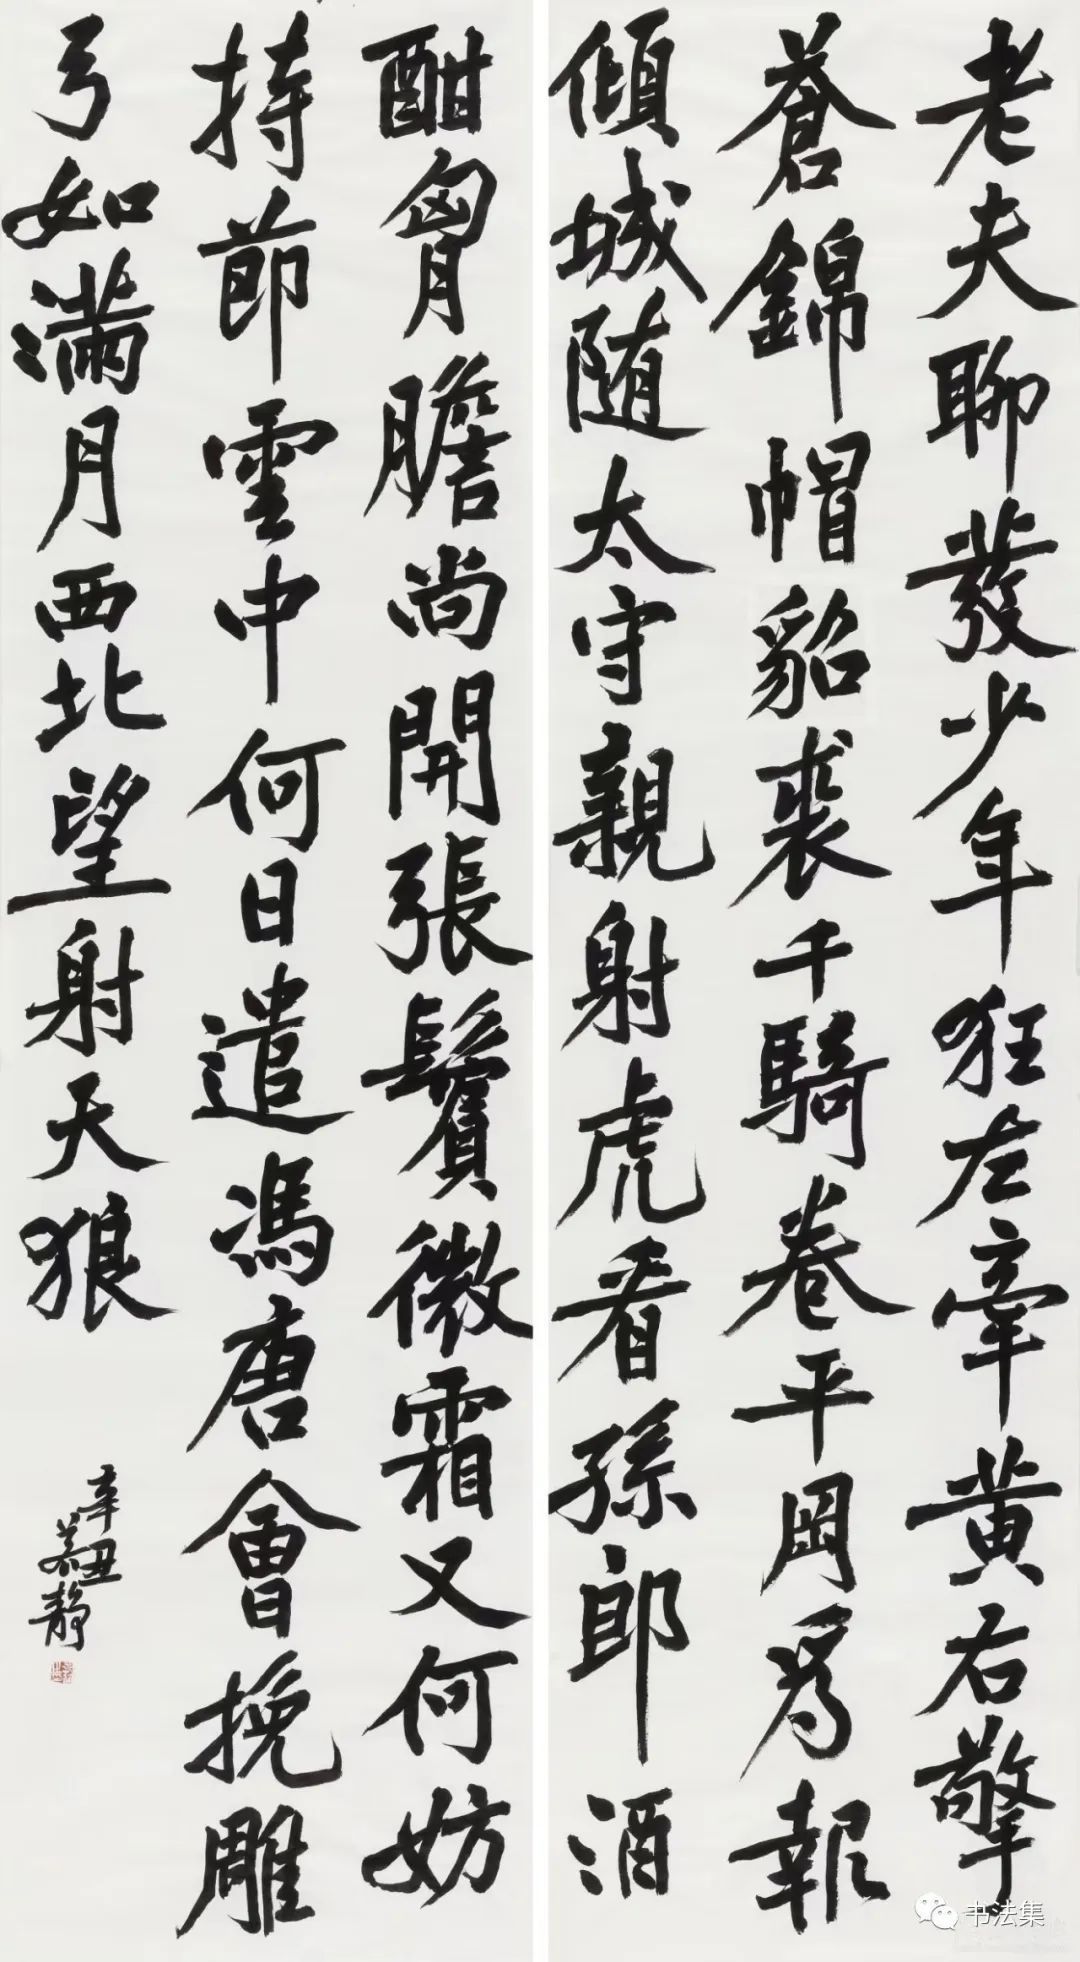 老夫聊發少年狂左牽黃右擎
蒼錦帽貂裘千騎卷平岡為報
傾城随太守親射虎看孫郎酒
酣胷膽尚開張鬢微霜又何妨
持節雲中何日遣馮唐會挽雕
弓如滿月西北望射天狼
辛丑
慕靜
书法集